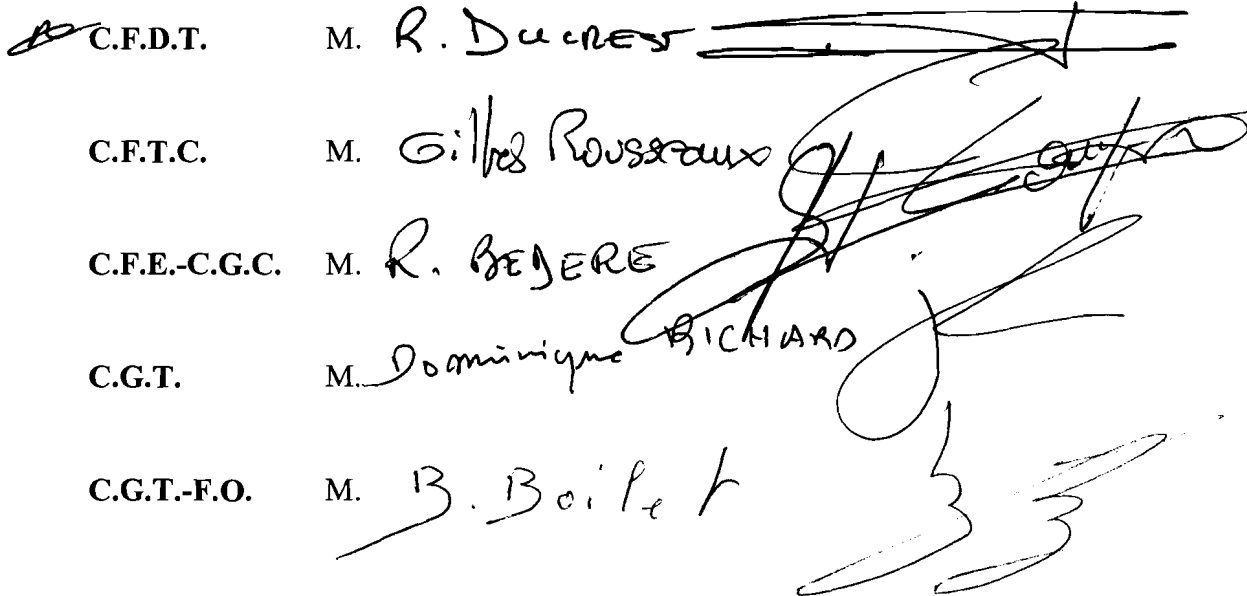 C.F.D.T. M. R. DUCREST
C.F.T.C. M. Gilles Rousseaux
C.F.E.-C.G.C. M. R. BEDERE
C.G.T. M. Dominique RICHARD
C.G.T.-F.O. M. B. Boilet